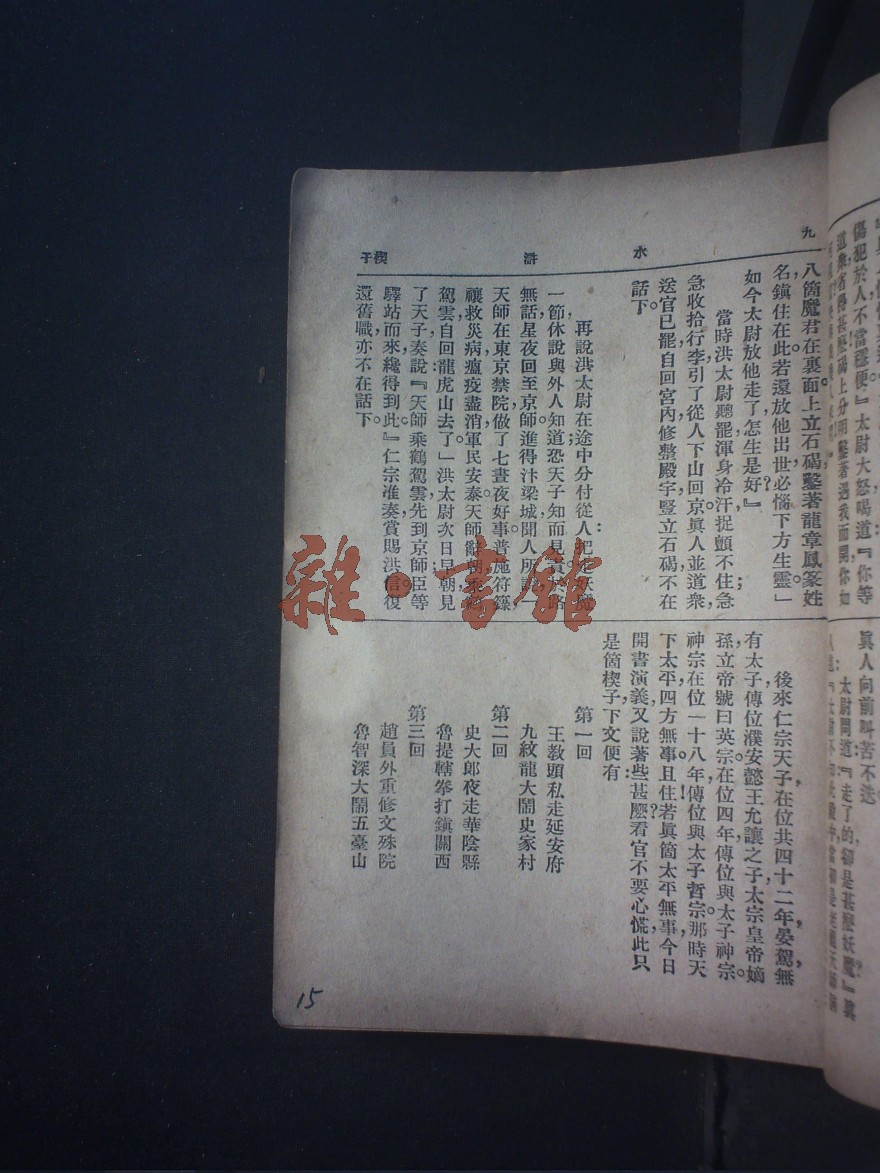 九
水
滸
楔子
八箇魔君在裏面。上立石碣，鑿著龍章鳳篆姓
名，鎭住在此。若還放他出世，必惱下方生靈。」
如今太尉放他走了，怎生是好？』
當時洪太尉聽罷，渾身冷汗，捉顫不住；急
急收拾行李，引了從人，下山回京。眞人並道衆
送官已罷，自回宮內修整殿宇，豎立石碣，不在
話下。
再說洪太尉在途中分付從人：把走妖魔
一節，休說與外人知道，恐天子知而見責。於路
無話，星夜回至京師。進得汴梁城，聞人所說：一
天師在東京禁院做了七晝夜好事，普施符籙，
禳救災病，瘟疫盡消，軍民安泰。天師辭朝，乘鶴
駕雲，自回龍虎山去了。」洪太尉次日早朝，見
了天子，奏說：『天師乘鶴駕雲，先到京師；臣等
驛站而來，纔得到此。』仁宗准奏，賞賜洪信，復
還舊職，亦不在話下。
後來仁宗天子在位共四十二年晏駕，無
有太子，傳位濮安懿王允讓之子，太宗皇帝嫡
孫，立帝號曰英宗。在位四年，傳位與太子神宗。
神宗在位一十八年，傳位與太子哲宗。那時天
下太平，四方無事。且住！若眞箇太平無事，今日
開書演義，又說著些甚麽？看官不要心慌，此只
是箇楔子，下文便有：
第一回
王教頭私走延安府
九紋龍大鬧史家村
第二回
史大郎夜走華陰縣
魯提轄拳打鎭關西
第三回
趙員外重修文殊院
魯智深大鬧五臺山
15
傷犯於人，不當穩便。』太尉大怒，喝道：『你等
眞人向前叫苦不迭。
太尉問道：『走了的卻是甚麽妖魔？』眞
雜·書館